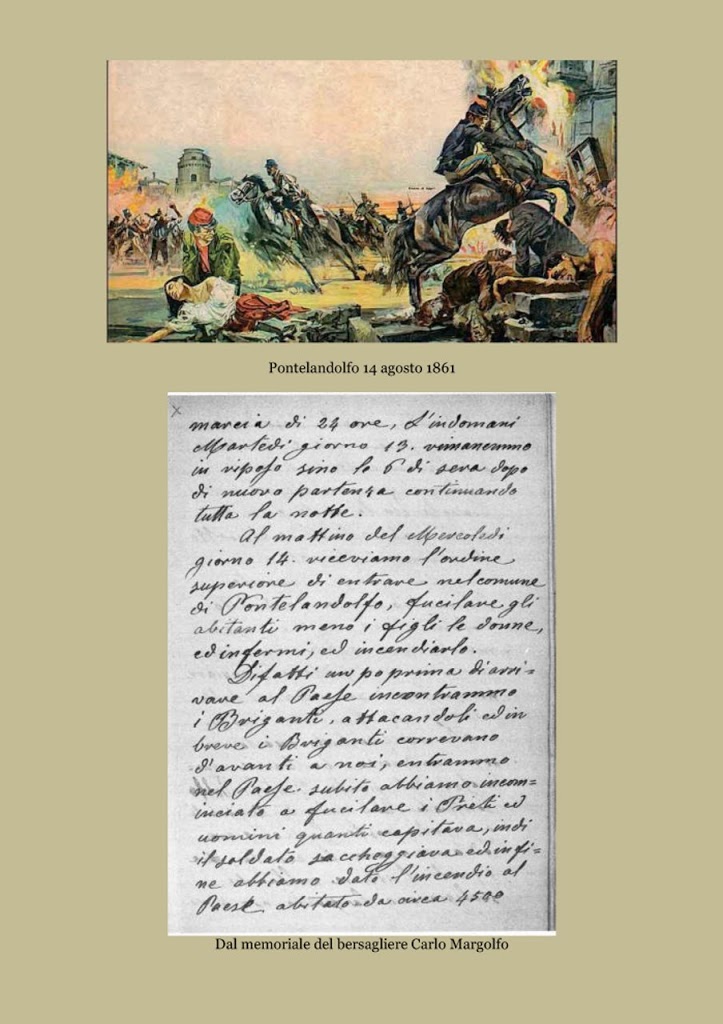 Pontelandolfo 14 agosto 1861
marcia di 24 ore, L'indomani
Martedi giorno 13. rimanemmo
in riposo sino le 6 di sera dopo
di nuovo partenza continuando
tutta la notte.
Al mattino del Mercoledi
giorno 14. riceviamo l'ordine
superiore di entrare nel comune
di Pontelandolfo, fucilare gli
abitanti meno i figli le donne,
ed infermi, ed incendiarlo.
Difatti un po prima di arri-
vare al Paese incontrammo
i Briganti, attacandoli ed in
breve i Briganti correvano
d'avanti a noi, entrammo
nel Paese subito abbiamo incom=
inciato a fucilare i Preti ed
uomini quanti capitava, indi
il soldato saccheggiava ed infi-
ne abbiamo dato l'incendio al
Paese abitato da circa 4500
Dal memoriale del bersagliere Carlo Margolfo